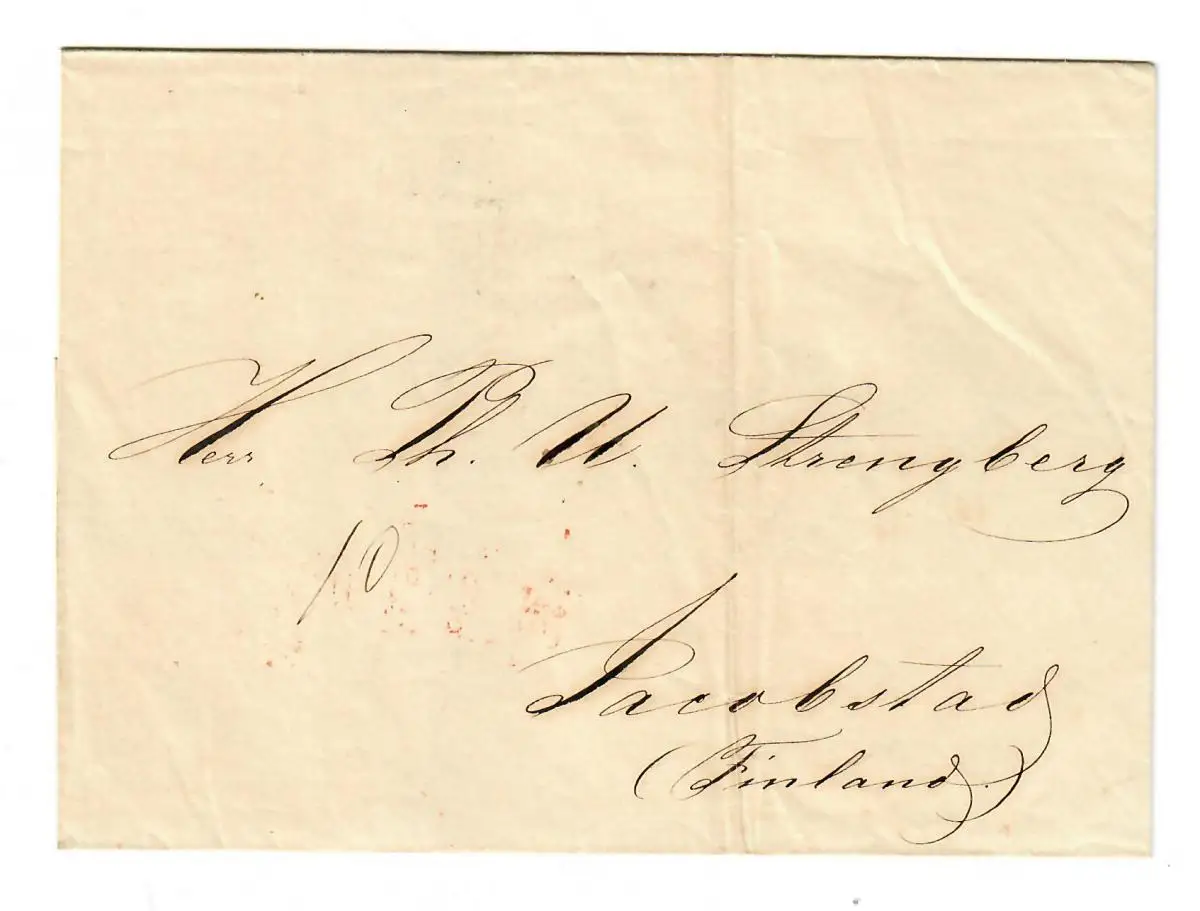 Herr Ph. U. Strengberg
10
Jacobstad
(Finland.)